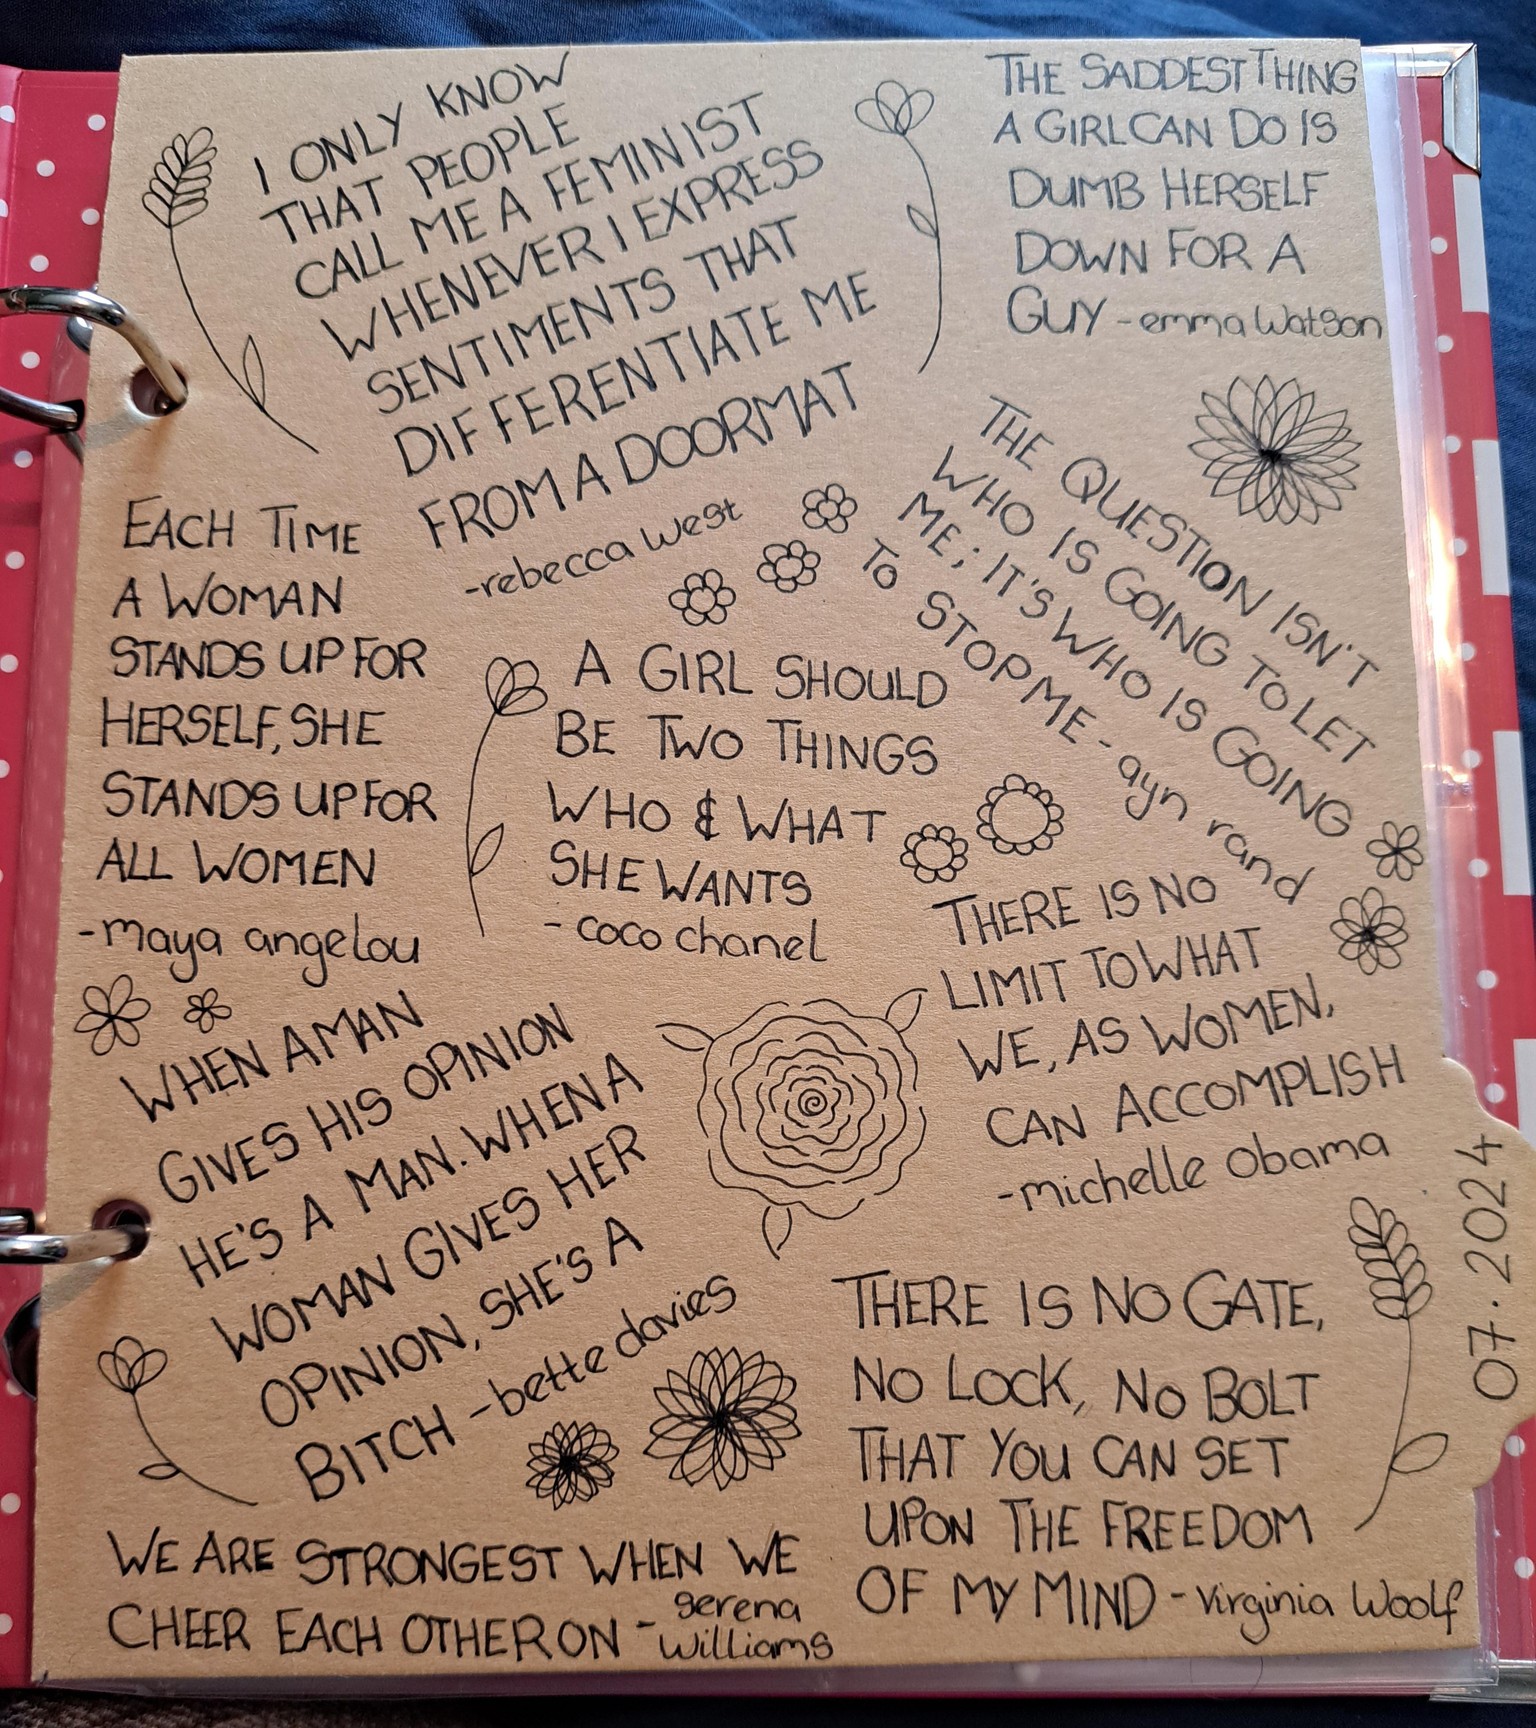 I ONLY KNOW
THAT PEOPLE
CALL ME A FEMINIST
WHENEVER I EXPRESS
SENTIMENTS THAT
DIFFERENTIATE ME
FROM A DOORMAT
-rebecca west
THE SADDEST THING
A GIRL CAN DO IS
DUMB HERSELF
DOWN FOR A
GUY - emma Watson
EACH TIME
A WOMAN
STANDS UP FOR
HERSELF, SHE
STANDS UP FOR
ALL WOMEN
-maya angelou
A GIRL SHOULD
BE TWO THINGS
WHO & WHAT
SHE WANTS
- coco chanel
THE QUESTION ISN'T
WHO IS GOING TO LET
ME; IT'S WHO IS GOING
TO STOP ME - ayn rand
THERE IS NO
LIMIT TO WHAT
WE, AS WOMEN,
CAN ACCOMPLISH
-michelle Obama
WHEN A MAN
GIVES HIS OPINION
HE'S A MAN. WHEN A
WOMAN GIVES HER
OPINION, SHE'S A
BITCH - bette davies
THERE IS NO GATE,
NO LOCK, NO BOLT
THAT YOU CAN SET
UPON THE FREEDOM
OF MY MIND - Virginia Woolf
WE ARE STRONGEST WHEN WE
CHEER EACH OTHER ON - serena
williams
07.2024